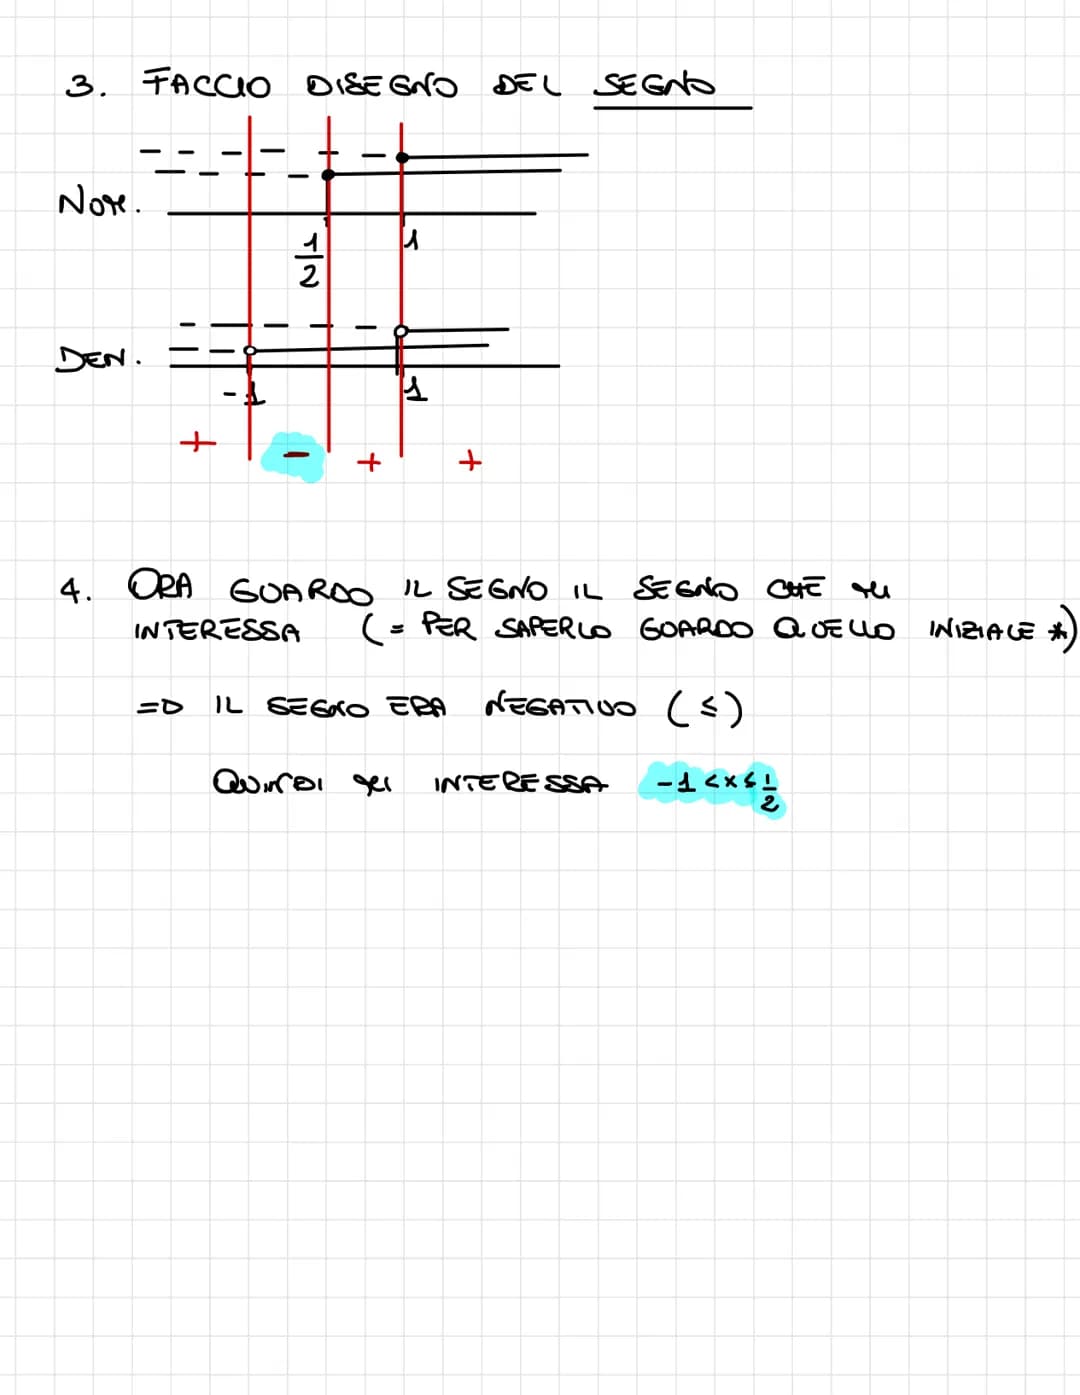 3. FACCIO DISEGNO DEL SEGNO
NUM.
1/2 1
DEN.
-1 1
+ - + +
4. ORA GUARDO IL SEGNO IL SEGNO CHE MI
INTERESSA (= PER SAPERLO GUARDO QUELLO INIZIALE *)
=D IL SEGNO ERA NEGATIVO (≤)
QUINDI MI INTERESSA -1 < x ≤ 1/2